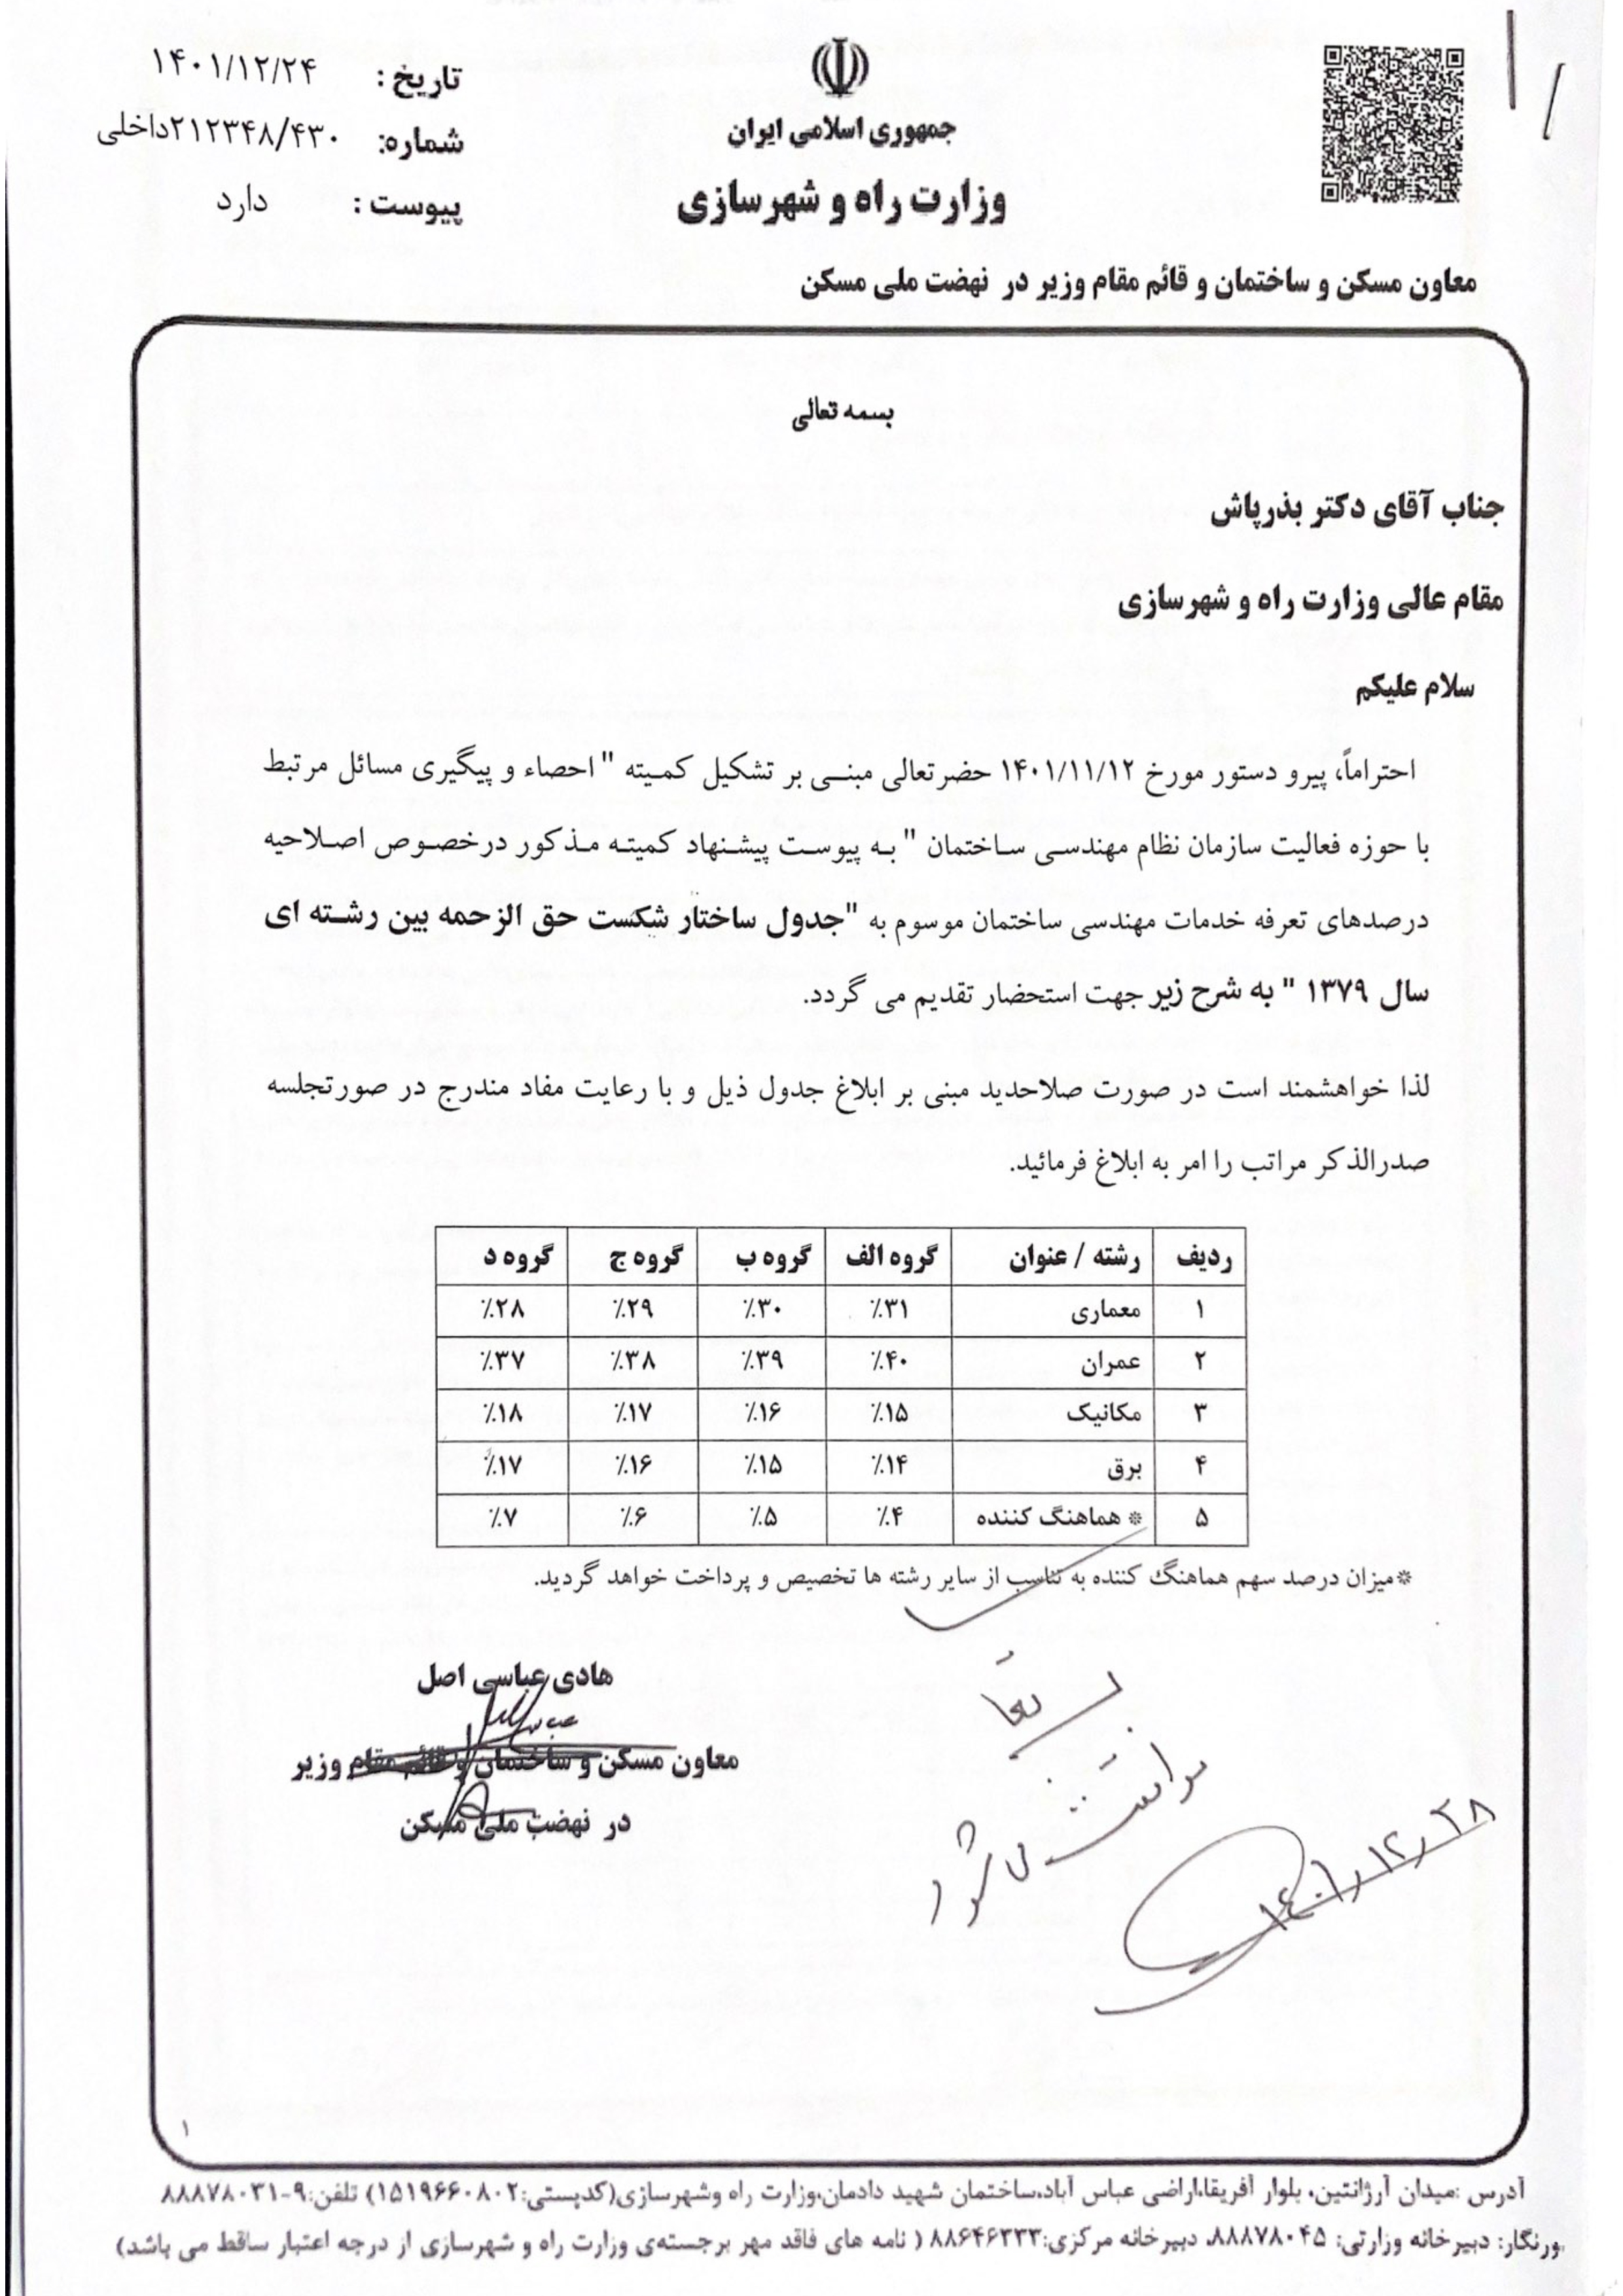 تاریخ : ۱۴۰۱/۱۲/۲۴
شماره: ۲۱۲۳۴۸/۴۳۰داخلی
پیوست : دارد
جمهوری اسلامی ایران
وزارت راه و شهرسازی
معاون مسکن و ساختمان و قائم مقام وزیر در نهضت ملی مسکن
بسمه تعالی
جناب آقای دکتر بذرپاش
مقام عالی وزارت راه و شهرسازی
سلام علیکم
احتراماً، پیرو دستور مورخ ۱۴۰۱/۱۱/۱۲ حضرتعالی مبنی بر تشکیل کمیته " احصاء و پیگیری مسائل مرتبط
با حوزه فعالیت سازمان نظام مهندسی ساختمان " به پیوست پیشنهاد کمیته مذکور درخصوص اصلاحیه
درصدهای تعرفه خدمات مهندسی ساختمان موسوم به "جدول ساختار شکست حق الزحمه بین رشته ای
سال ۱۳۷۹ " به شرح زیر جهت استحضار تقدیم می گردد.
لذا خواهشمند است در صورت صلاحدید مبنی بر ابلاغ جدول ذیل و با رعایت مفاد مندرج در صورتجلسه
صدرالذکر مراتب را امر به ابلاغ فرمائید.
ردیف رشته / عنوان گروه الف گروه ب گروه ج گروه د
۱ معماری ٪۳۱ ٪۳۰ ٪۲۹ ٪۲۸
۲ عمران ٪۴۰ ٪۳۹ ٪۳۸ ٪۳۷
۳ مکانیک ٪۱۵ ٪۱۶ ٪۱۷ ٪۱۸
۴ برق ٪۱۴ ٪۱۵ ٪۱۶ ٪۱۷
۵ * هماهنگ کننده ٪۴ ٪۵ ٪۶ ٪۷
*میزان درصد سهم هماهنگ کننده به تناسب از سایر رشته ها تخصیص و پرداخت خواهد گردید.
هادی عباسی اصل
معاون مسکن و ساختمان و قائم مقام وزیر
در نهضت ملی مسکن
موافقت می شود
۱۴۰۱/۱۲/۲۸
۱
آدرس :میدان آرژانتین، بلوار آفریقا،اراضی عباس آباد،ساختمان شهید دادمان،وزارت راه وشهرسازی(کدپستی:۱۵۱۹۶۶۰۸۰۲) تلفن:۹-۸۸۸۷۸۰۳۱
ورنگار: دبیرخانه وزارتی: ۸۸۸۷۸۰۴۵، دبیرخانه مرکزی:۸۸۶۴۶۳۳۳ ( نامه های فاقد مهر برجسته‌ی وزارت راه و شهرسازی از درجه اعتبار ساقط می باشد)